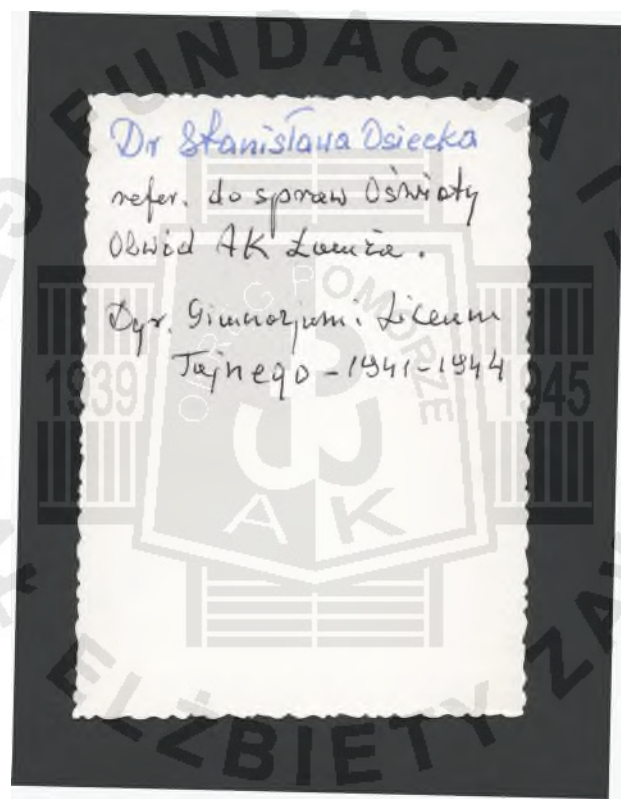 FUNDACJA I
Dr Stanisława Osiecka
refer. do spraw Oświaty
Obwód AK Łomża.
Dyr. Gimnazjum i Liceum
Tajnego - 1941-1944
OKRĘG POMORZE
1939
1945
AK
ELŻBIETY ZAW